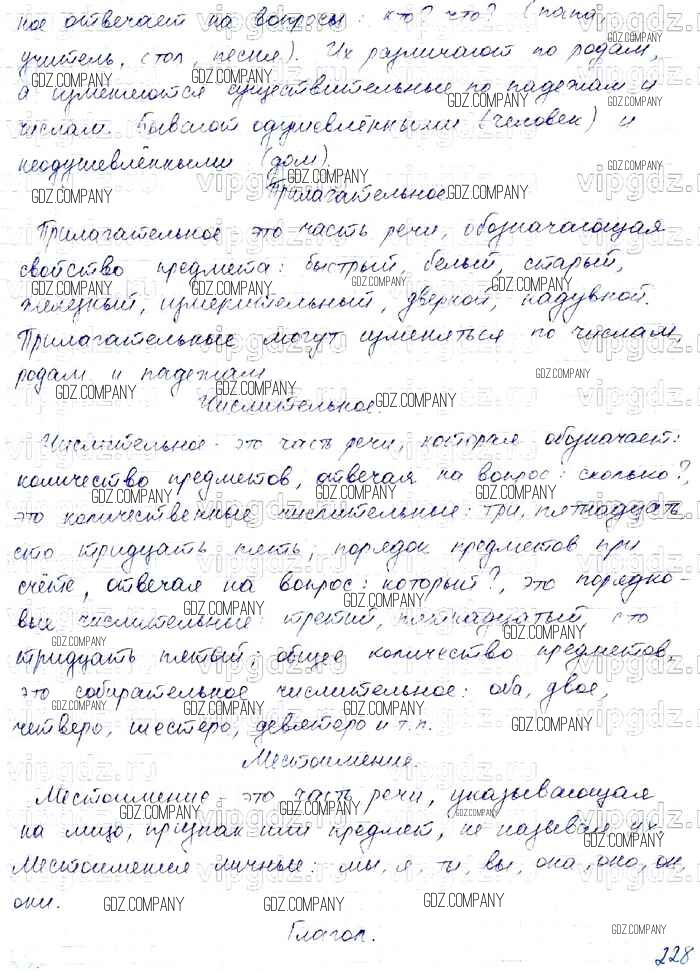 ное отвечает на вопросы: кто? что? (папа,
учитель, стол, песня). Их различают по родам,
а изменяются существительные по падежам и
числам. Бывают одушевлёнными (человек) и
неодушевлёнными (дом).
Прилагательное
Прилагательное - это часть речи, обозначающая
свойство предмета: быстрый, белый, старый,
железный, измерительный, дверной, надувной.
Прилагательные могут изменяться по числам,
родам и падежам
Числительное.
Числительное - это часть речи, которая обозначает:
количество предметов, отвечая на вопрос: сколько?,
это количественные числительные: три, пятнадцать
сто тридцать пять; порядок предметов при
счёте, отвечая на вопрос: который?, это порядко-
вые числительные: третий, пятнадцатый, сто
тридцать пятый; общее количество предметов,
это собирательное числительное: оба, двое,
четверо, шестеро, девятеро и т.п.
Местоимение.
Местоимение - это часть речи, указывающая
на лицо, признак или предмет, не называя их.
Местоимения личные: мы, я, ты, вы, она, оно, он,
они.
Глагол.
228
GDZ.COMPANY
vipgdz.ru